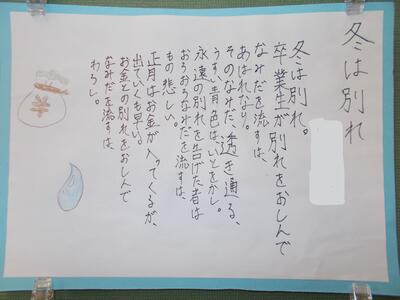 冬は別れ
冬は別れ。
卒業生が別れをおしんで
なみだを流すは、
あはれなり。
そのなみだ、透き通る、
うすい青色は、いとをかし。
永遠の別れを告げた者は
おろおろなみだを流すは、
もの悲しい。
正月はお金が入ってくるが、
出ていくも早い。
お金との別れをおしんで
なみだを流すは、
わろし。